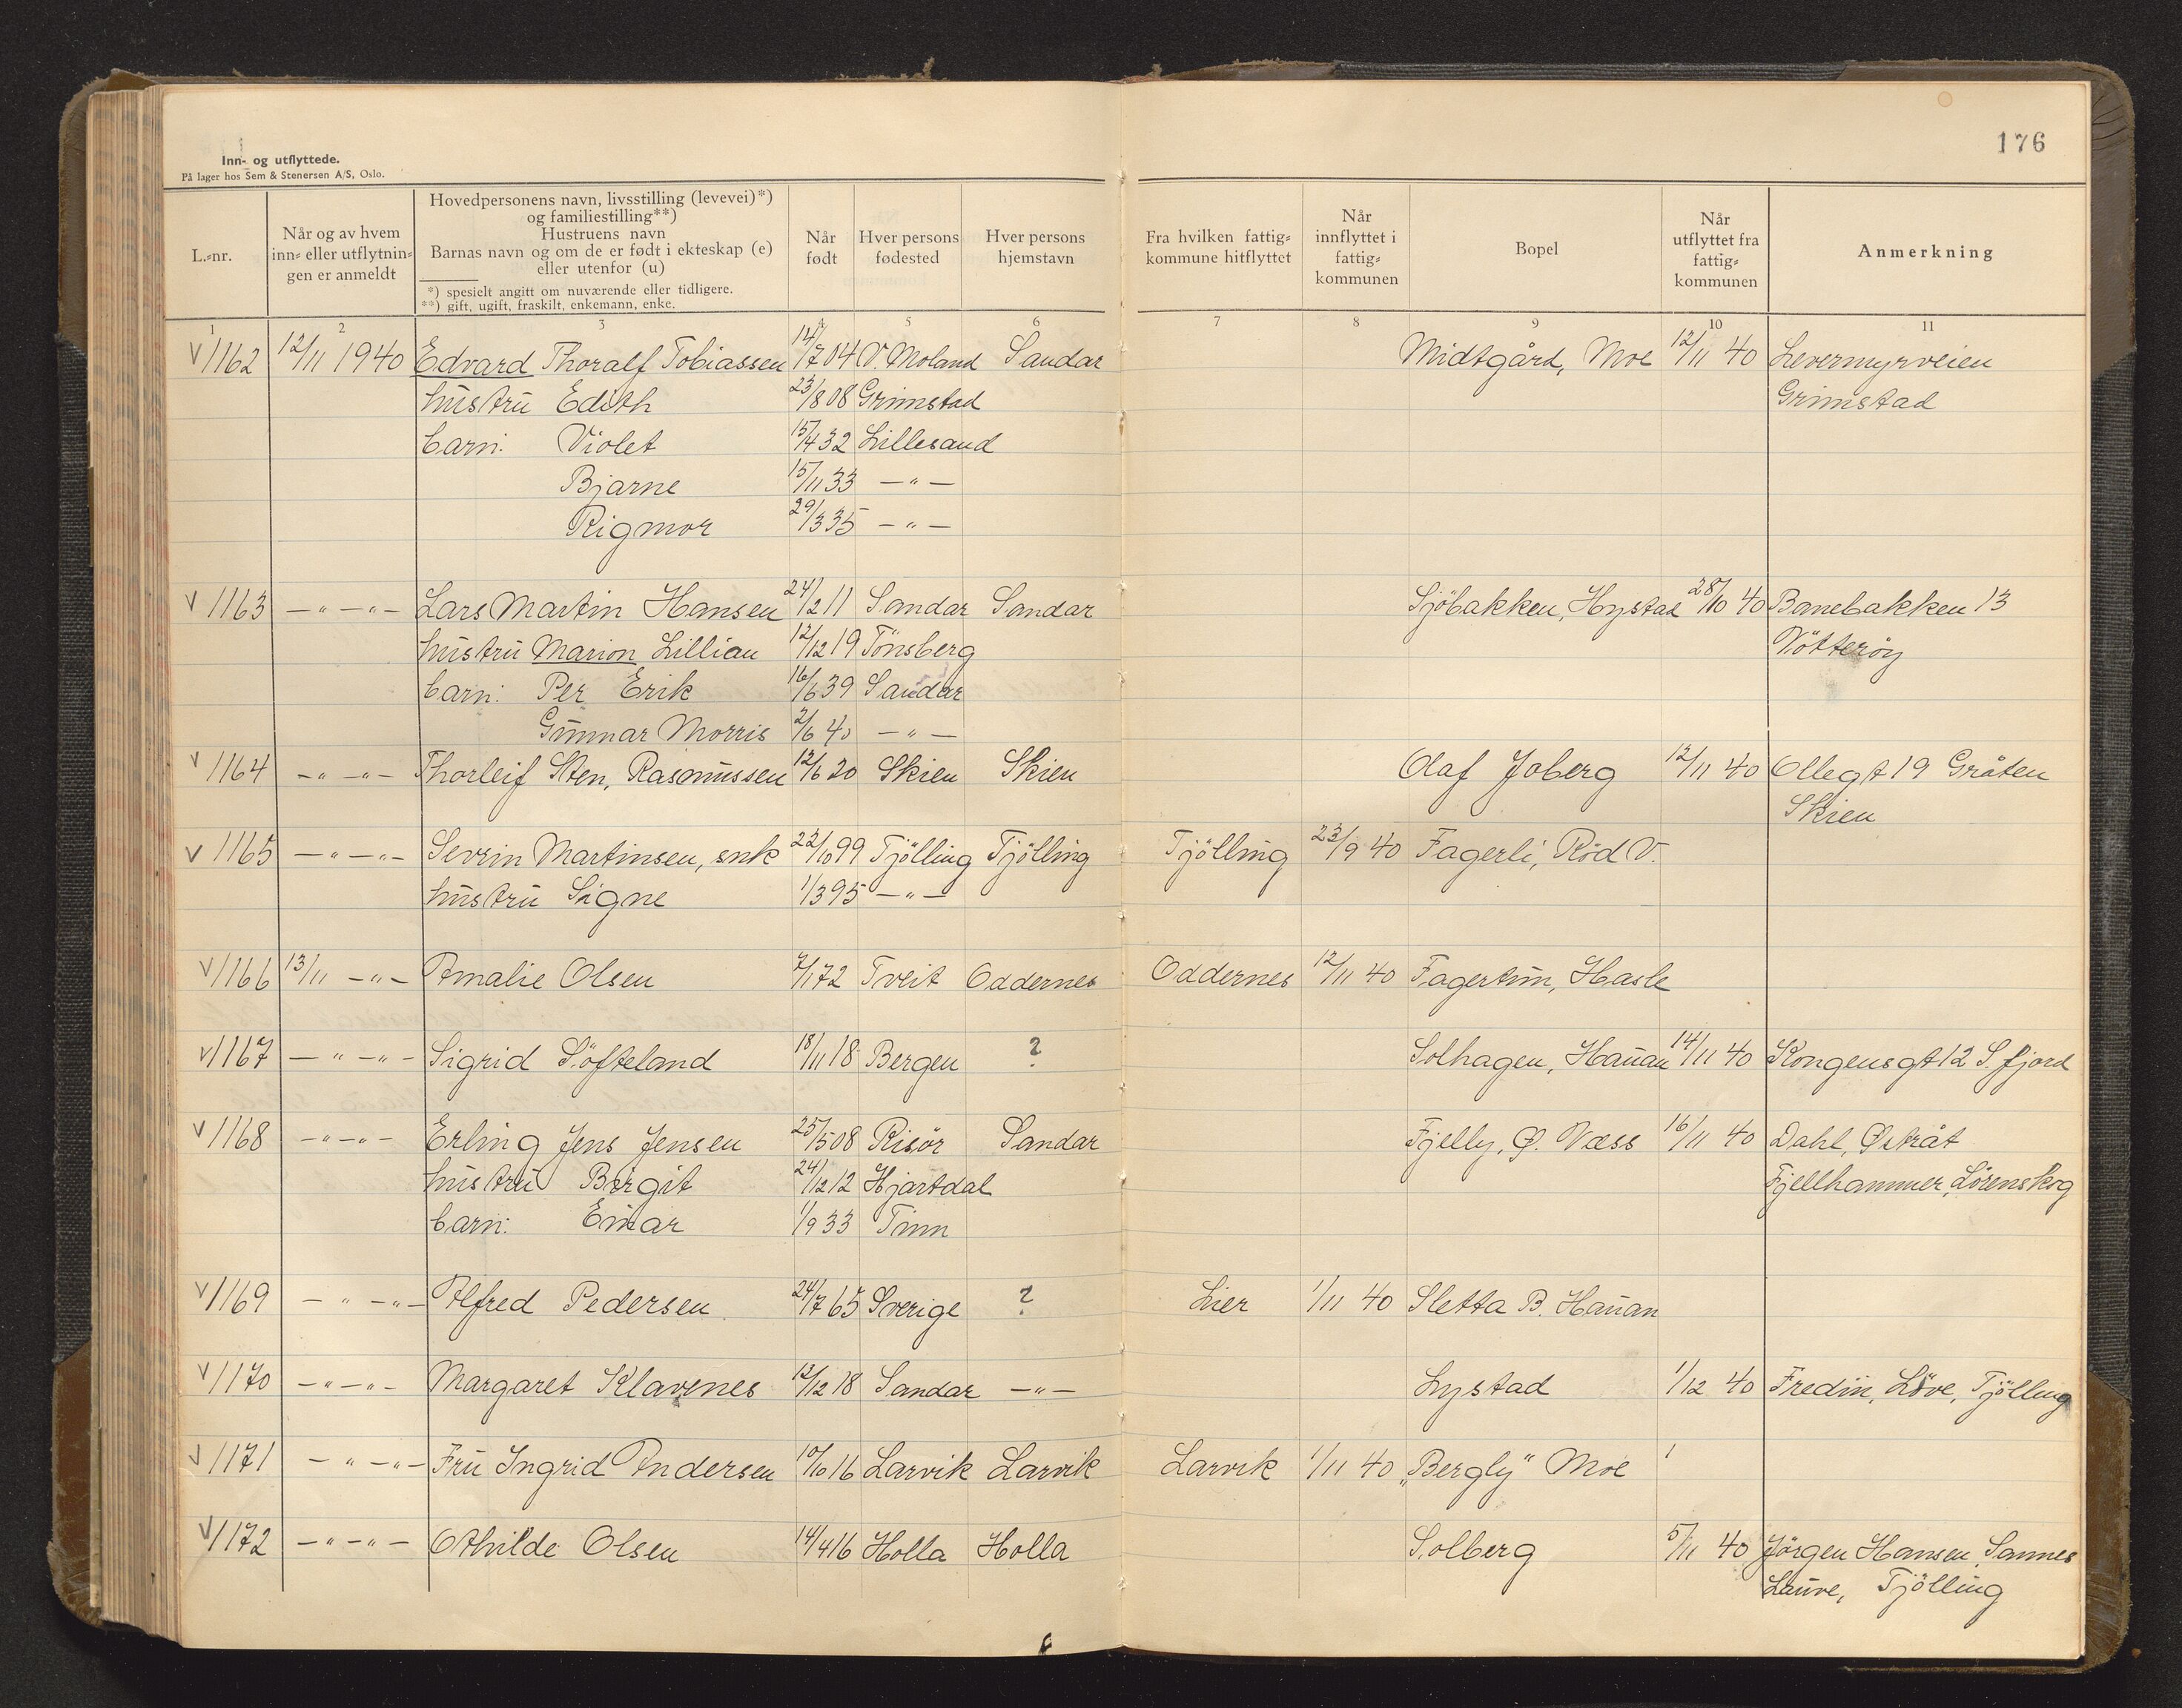 176
Inn- og utflyttede.
På lager hos Sem & Stenersen A/S, Oslo.
L.-nr.
Når og av hvem inn- eller utflytnin- gen er anmeldt
Hovedpersonens navn, livsstilling (levevei)*) og familiestilling**)
Hustruens navn
Barnas navn og om de er født i ekteskap (e) eller utenfor (u)
*) spesielt angitt om nuværende eller tidligere.
**) gift, ugift, fraskilt, enkemann, enke.
Når født
Hver persons fødested
Hver persons hjemstavn
Fra hvilken fattig- kommune hitflyttet
Når innflyttet i fattig- kommunen
Bopel
Når utflyttet fra fattig- kommunen
Anmerkning
1 2 3 4 5 6 7 8 9 10 11
V 1162 12/11 1940 Edvard Thoralf Tobiassen 14/7 04 V. Moland Sandar Midtgård, Moe 12/11 40 Levermyrveien
hustru Edith 23/8 08 Grimstad Grimstad
barn: Violet 15/4 32 Lillesand
Bjarne 15/11 33 — " —
Rigmor 29/3 35 — " —
V 1163 — " — " — Lars Martin Hansen 24/12 11 Sandar Sandar Sjöbakken, Hystad 28/10 40 Banebakken 13
hustru Marion Lillian 12/12 19 Tönsberg Nötteröy
barn: Per Erik 16/6 39 Sandar
Gunnar Morris 2/6 40 — " —
V 1164 — " — " — Thorleif Sten, Rasmussen 12/6 20 Skien Skien Olaf Joberg 12/11 40 Ollegt 19 Gråten
Skien
V 1165 — " — " — Sevrin Martinsen, snk 22/10 99 Tjölling Tjölling Tjölling 23/9 40 Fagerli, Röd V.
hustru Signe 1/3 95 — " —
V 1166 13/11 — " — Amalie Olsen 7/1 72 Tveit Oddernes Oddernes 12/11 40 Fagertun, Hasle
V 1167 — " — " — Sigrid Söfteland 18/11 18 Bergen ? Solhagen, Hauan 14/11 40 Kongensgt 12 S. fjord
V 1168 — " — " — Erling Jens Jensen 25/5 08 Risör Sandar Fjelly, Ø. Væss 16/11 40 Dahl, Østråt
hustru Birgit 24/12 12 Hjartdal Fjellhammer, Lörenskog
barn: Einar 1/9 33 Tinn
V 1169 — " — " — Alfred Pedersen 24/7 65 Sverige ? Lier 1/11 40 Sletta B. Hauan
V 1170 — " — " — Margaret Klavenes 12/12 18 Sandar — " — Lystad 1/12 40 Fredin, Löve, Tjölling
V 1171 — " — " — Fru Ingrid Andersen 10/10 16 Larvik Larvik Larvik 1/11 40 „Bergly" Moe
V 1172 — " — " — Othilde Olsen 14/4 16 Holla Holla Solberg 5/11 40 Jörgen Hansen Sannes
Lauve, Tjölling